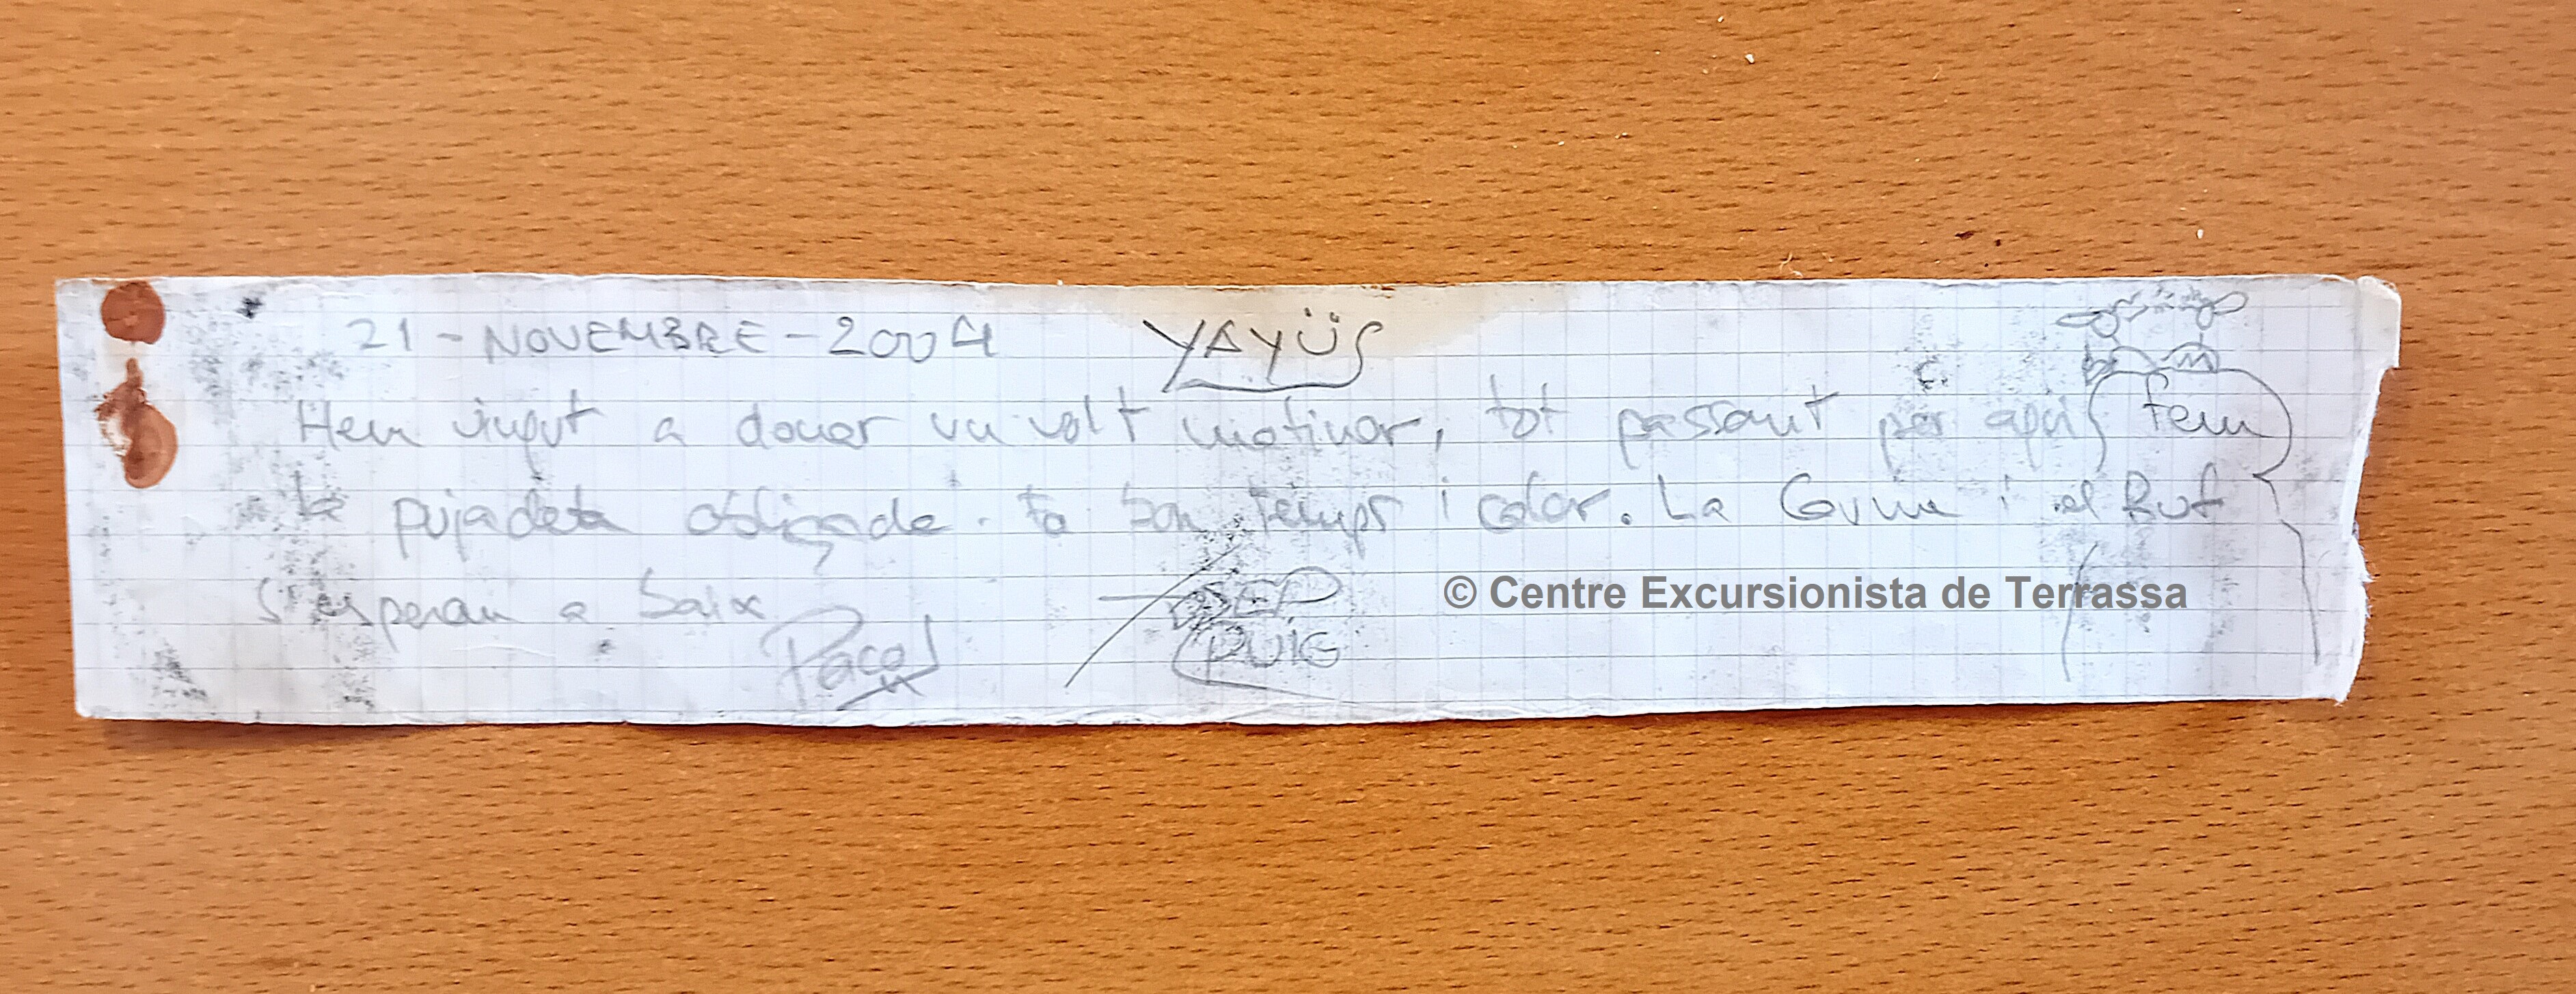 21 - NOVEMBRE - 2004 YAYÜS
Hem vingut a donar un volt matinar, tot passant per aqui fem
la pujadeta obligada. fa bon temps i calor. La Gemma i el Buf
s'esperan a baix
Paco
PEP
PUIG
© Centre Excursionista de Terrassa